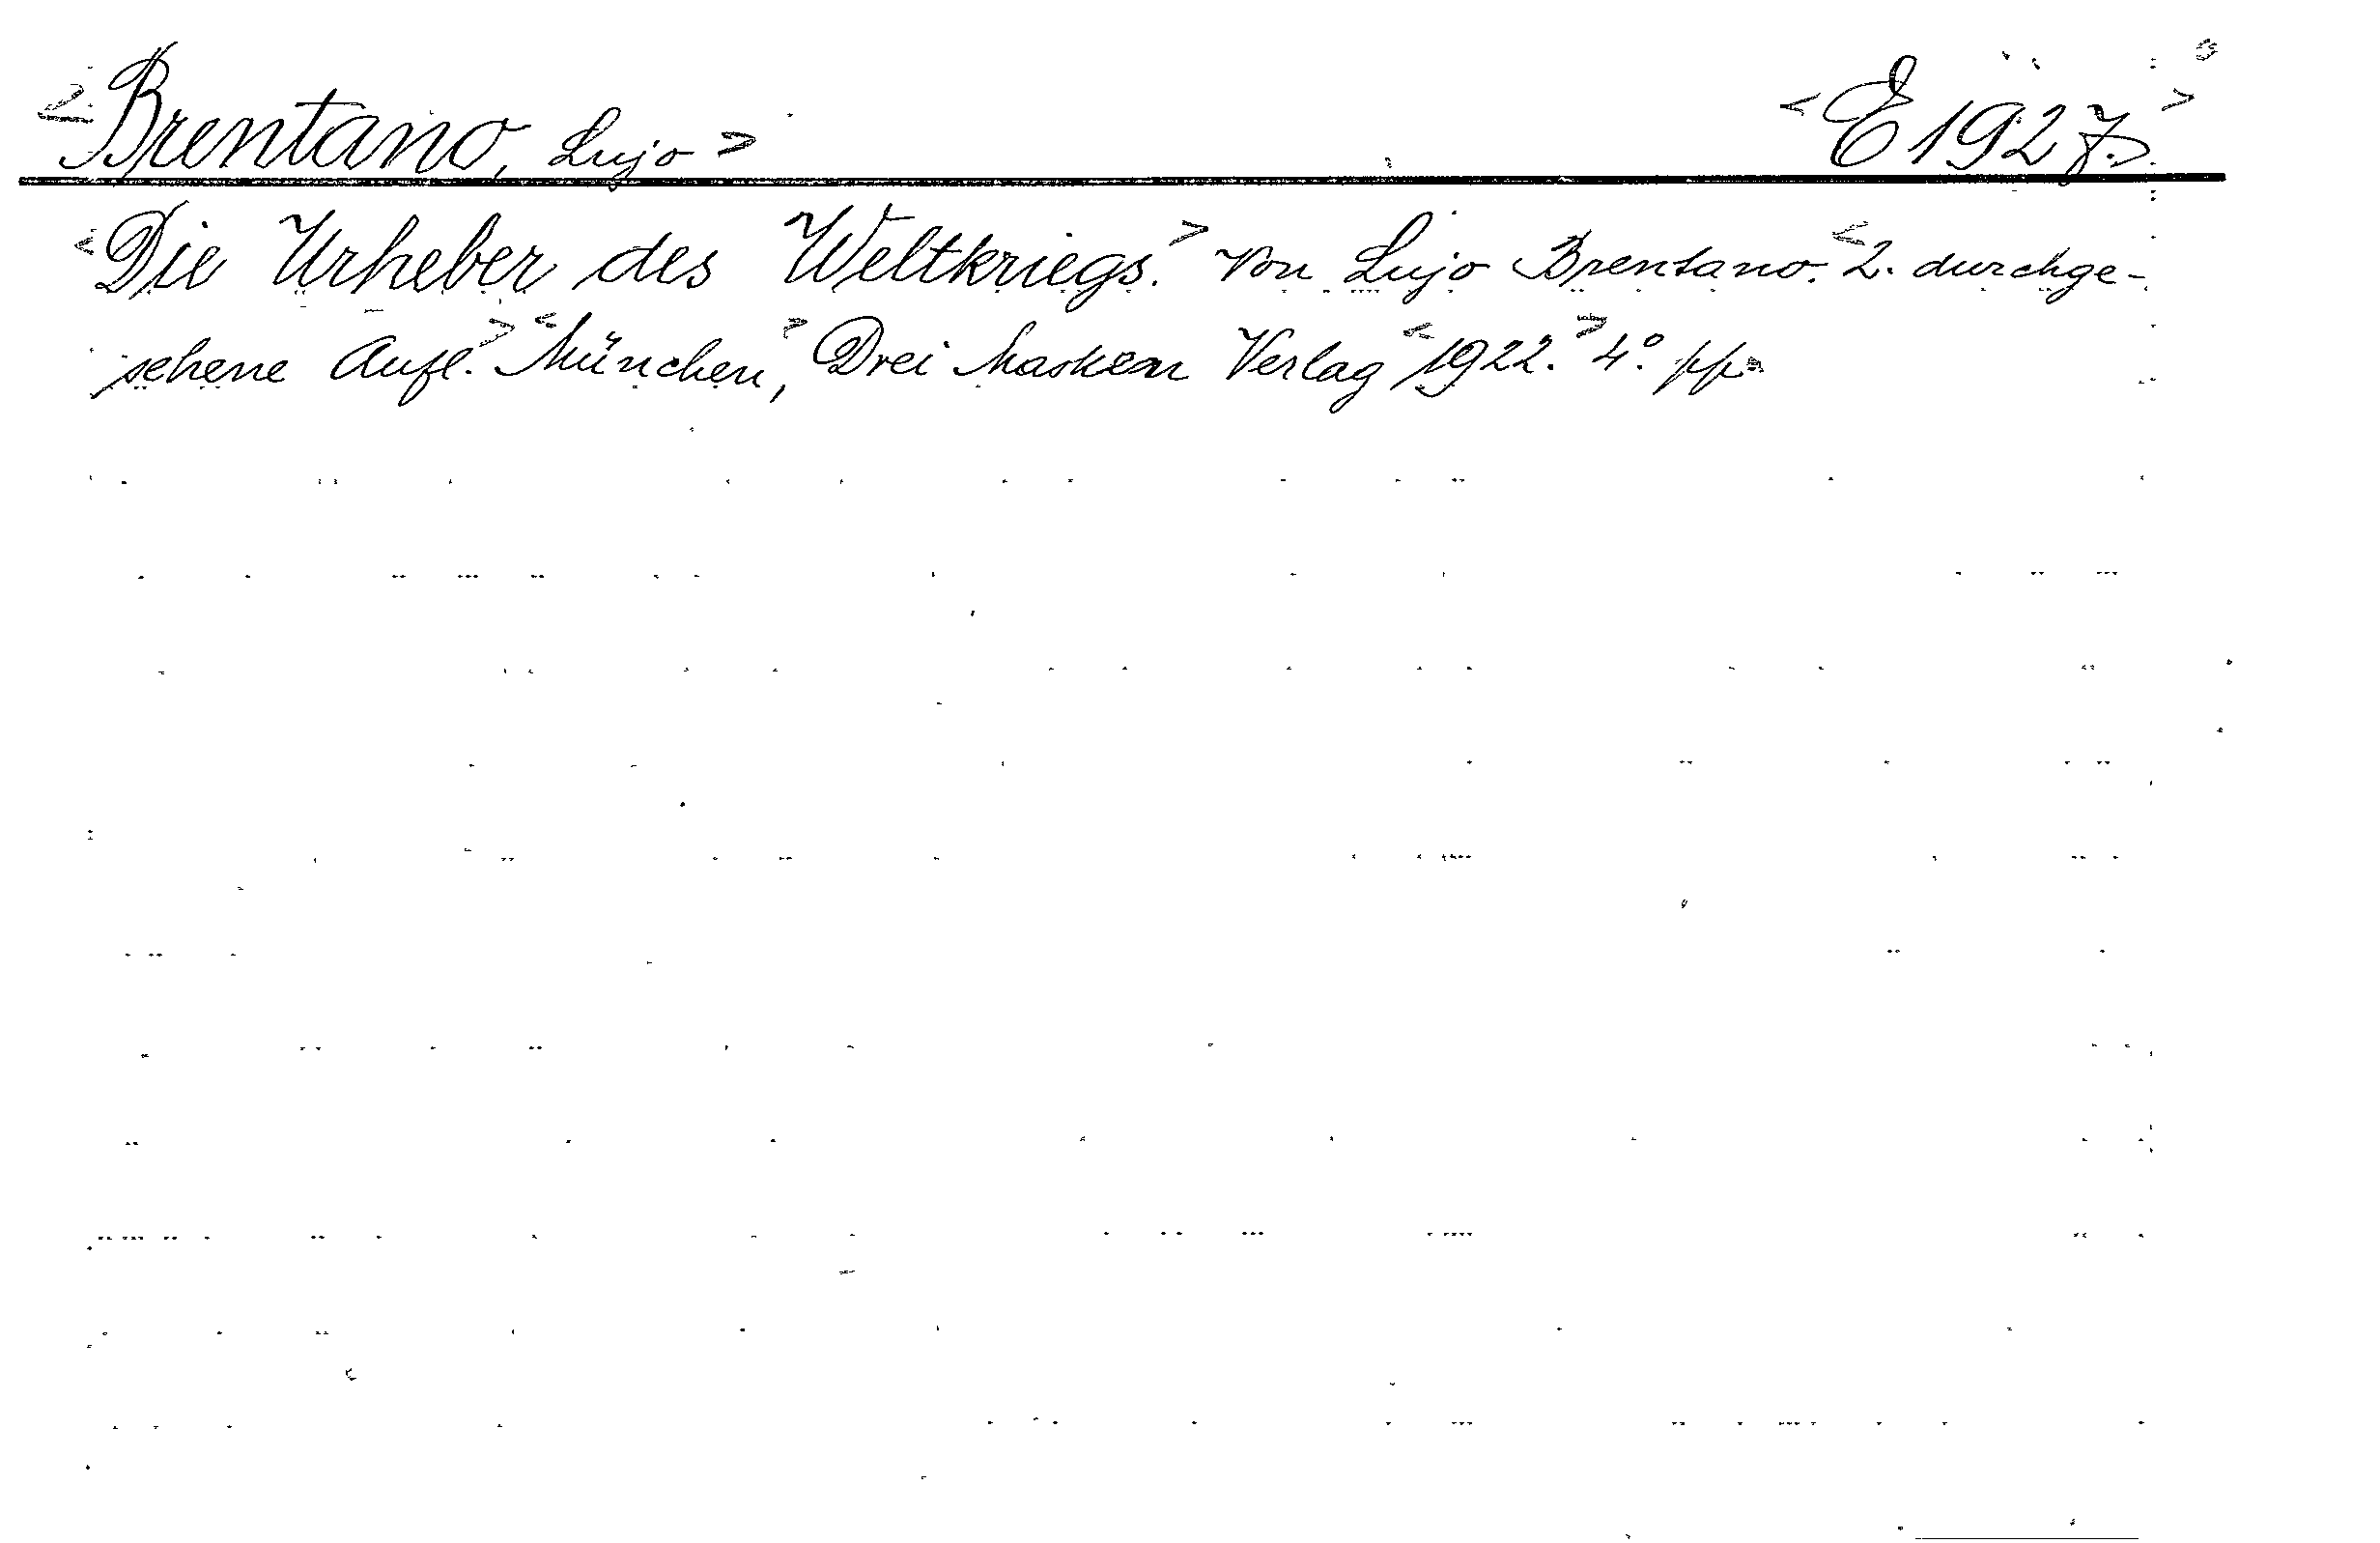 <Brentano, Lujo> <E 1927.>
<Die Urheber des Weltkriegs.> Von Lujo Brentano. <2. durchge-
sehene Aufl.> <München,> Drei Masken Verlag <1922.> 4°. pp.